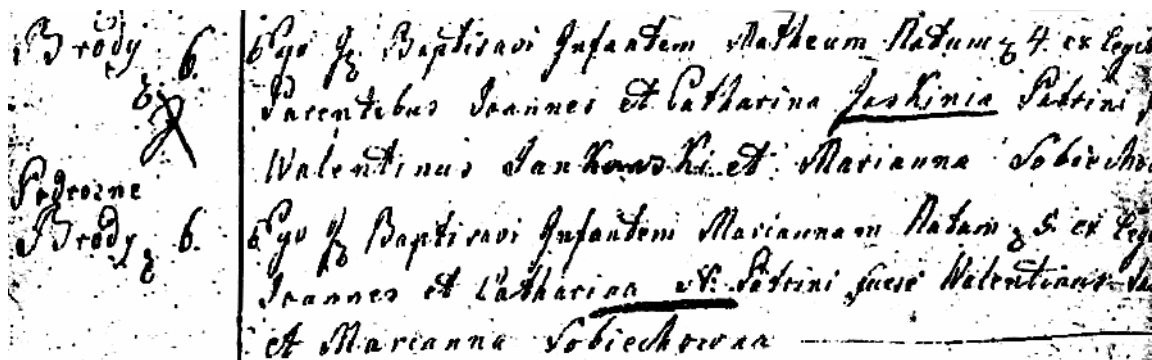 Brody 6. Ego Baptisavi Infantem Matheum Natum 4. ex
Parentibus Joannes et Catharina Jaskinia Patrini
Walentinus Jankowski et Marianna
Podrozne
Brody 6. Ego Baptisavi Infantem Mariannam Natam 5. ex
Joannes et Catharina N: Patrini fuere Walentinus
et Marianna Sobiechowna